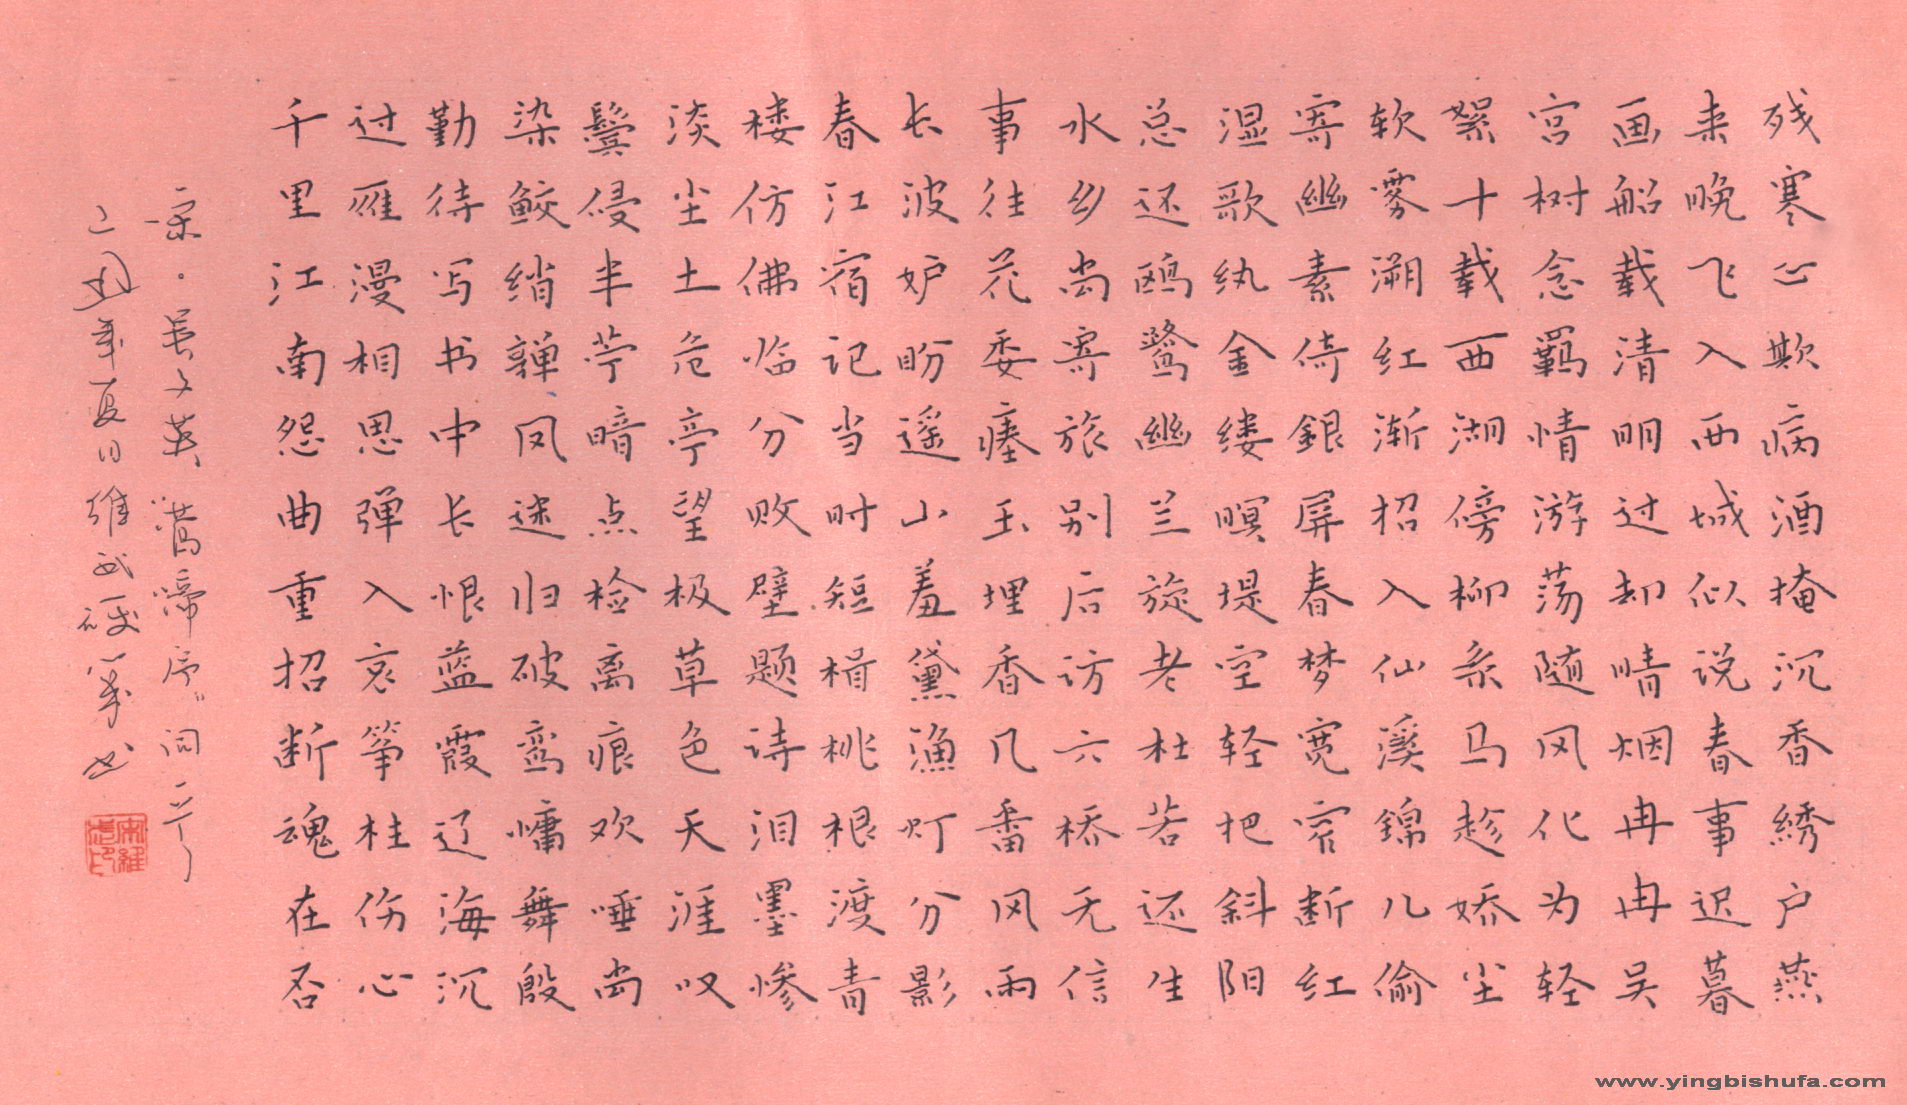 残寒正欺病酒掩沉香綉户燕
来晚飞入西城似说春事迟暮
画船载清明过却晴烟冉冉吴
宫树念羁情游荡随风化为轻
絮十载西湖傍柳系马趁娇尘
软雾溯红渐招入仙溪锦儿偷
寄幽素倚銀屏春梦宽窄断红
湿歌纨金缕暝堤空轻把斜阳
总还鸥鹭幽兰旋老杜若还生
水乡尚寄旅别后访六桥无信
事往花委瘗玉埋香几番风雨
长波妒盼遥山羞黛漁灯分影
春江宿记当时短楫桃根渡青
楼仿佛临分败壁题诗泪墨惨
淡尘土危亭望极草色天涯叹
鬓侵半苧暗点检离痕欢唾尚
染鲛绡亸凤迷归破鸾慵舞殷
勤待写书中长恨蓝霞辽海沉
过雁漫相思弹入哀筝柱伤心
千里江南怨曲重招断魂在否
宋·吴文英莺啼序词一首
乙酉年夏日维武硬笔书
宋维武印
www.yingbishufa.com